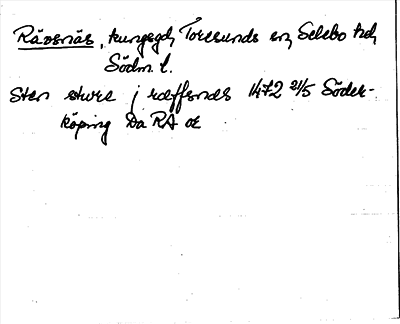 Rävsnäs, kungsgd, Toresunds sn, Selebo hd,
Södm. l.
Sten sture j ræffsnæs 1472 21/5 Söder-
köping Da RA or